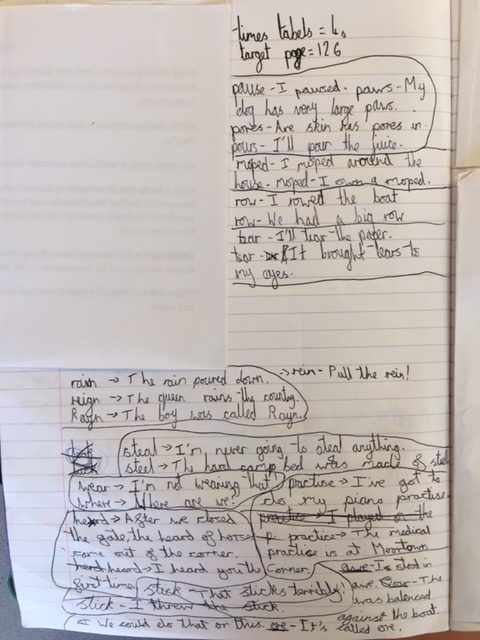 times tabels = 4.
target page = 126
pause - I paused. paws - My
dog has very large paws.
pores - Are skin has pores in.
pours - I'll pour the juice.
moped - I moped around the
house. moped - I own a moped.
row - I rowed the boat
row - We had a big row
tear - I'll tear the paper.
tear - It brought tears to
my eyes.
rain → The rain poured down. → rein - Pull the rein!
reign → The queen rains the country.
Rayn → The boy was called Rayn.
steal → I'm never going to steal anything.
steel → The hard camp bed was made of steel
wear → I'm not wearing that!
where → Where are we?
practise → I've got to
do my piano practise.
practice → I played on the
practice → The medical
practice is at Moortown
corner.
heard → After we closed
the gate, the heard of horses
came out of the corner.
heard → I heard you the
first time.
I stood in
awe. Oar - The
was balenced
against the boat.
stick - That sticks terribly.
stick - I threw the stick.
or We could do that or this. ore - It's called ore.